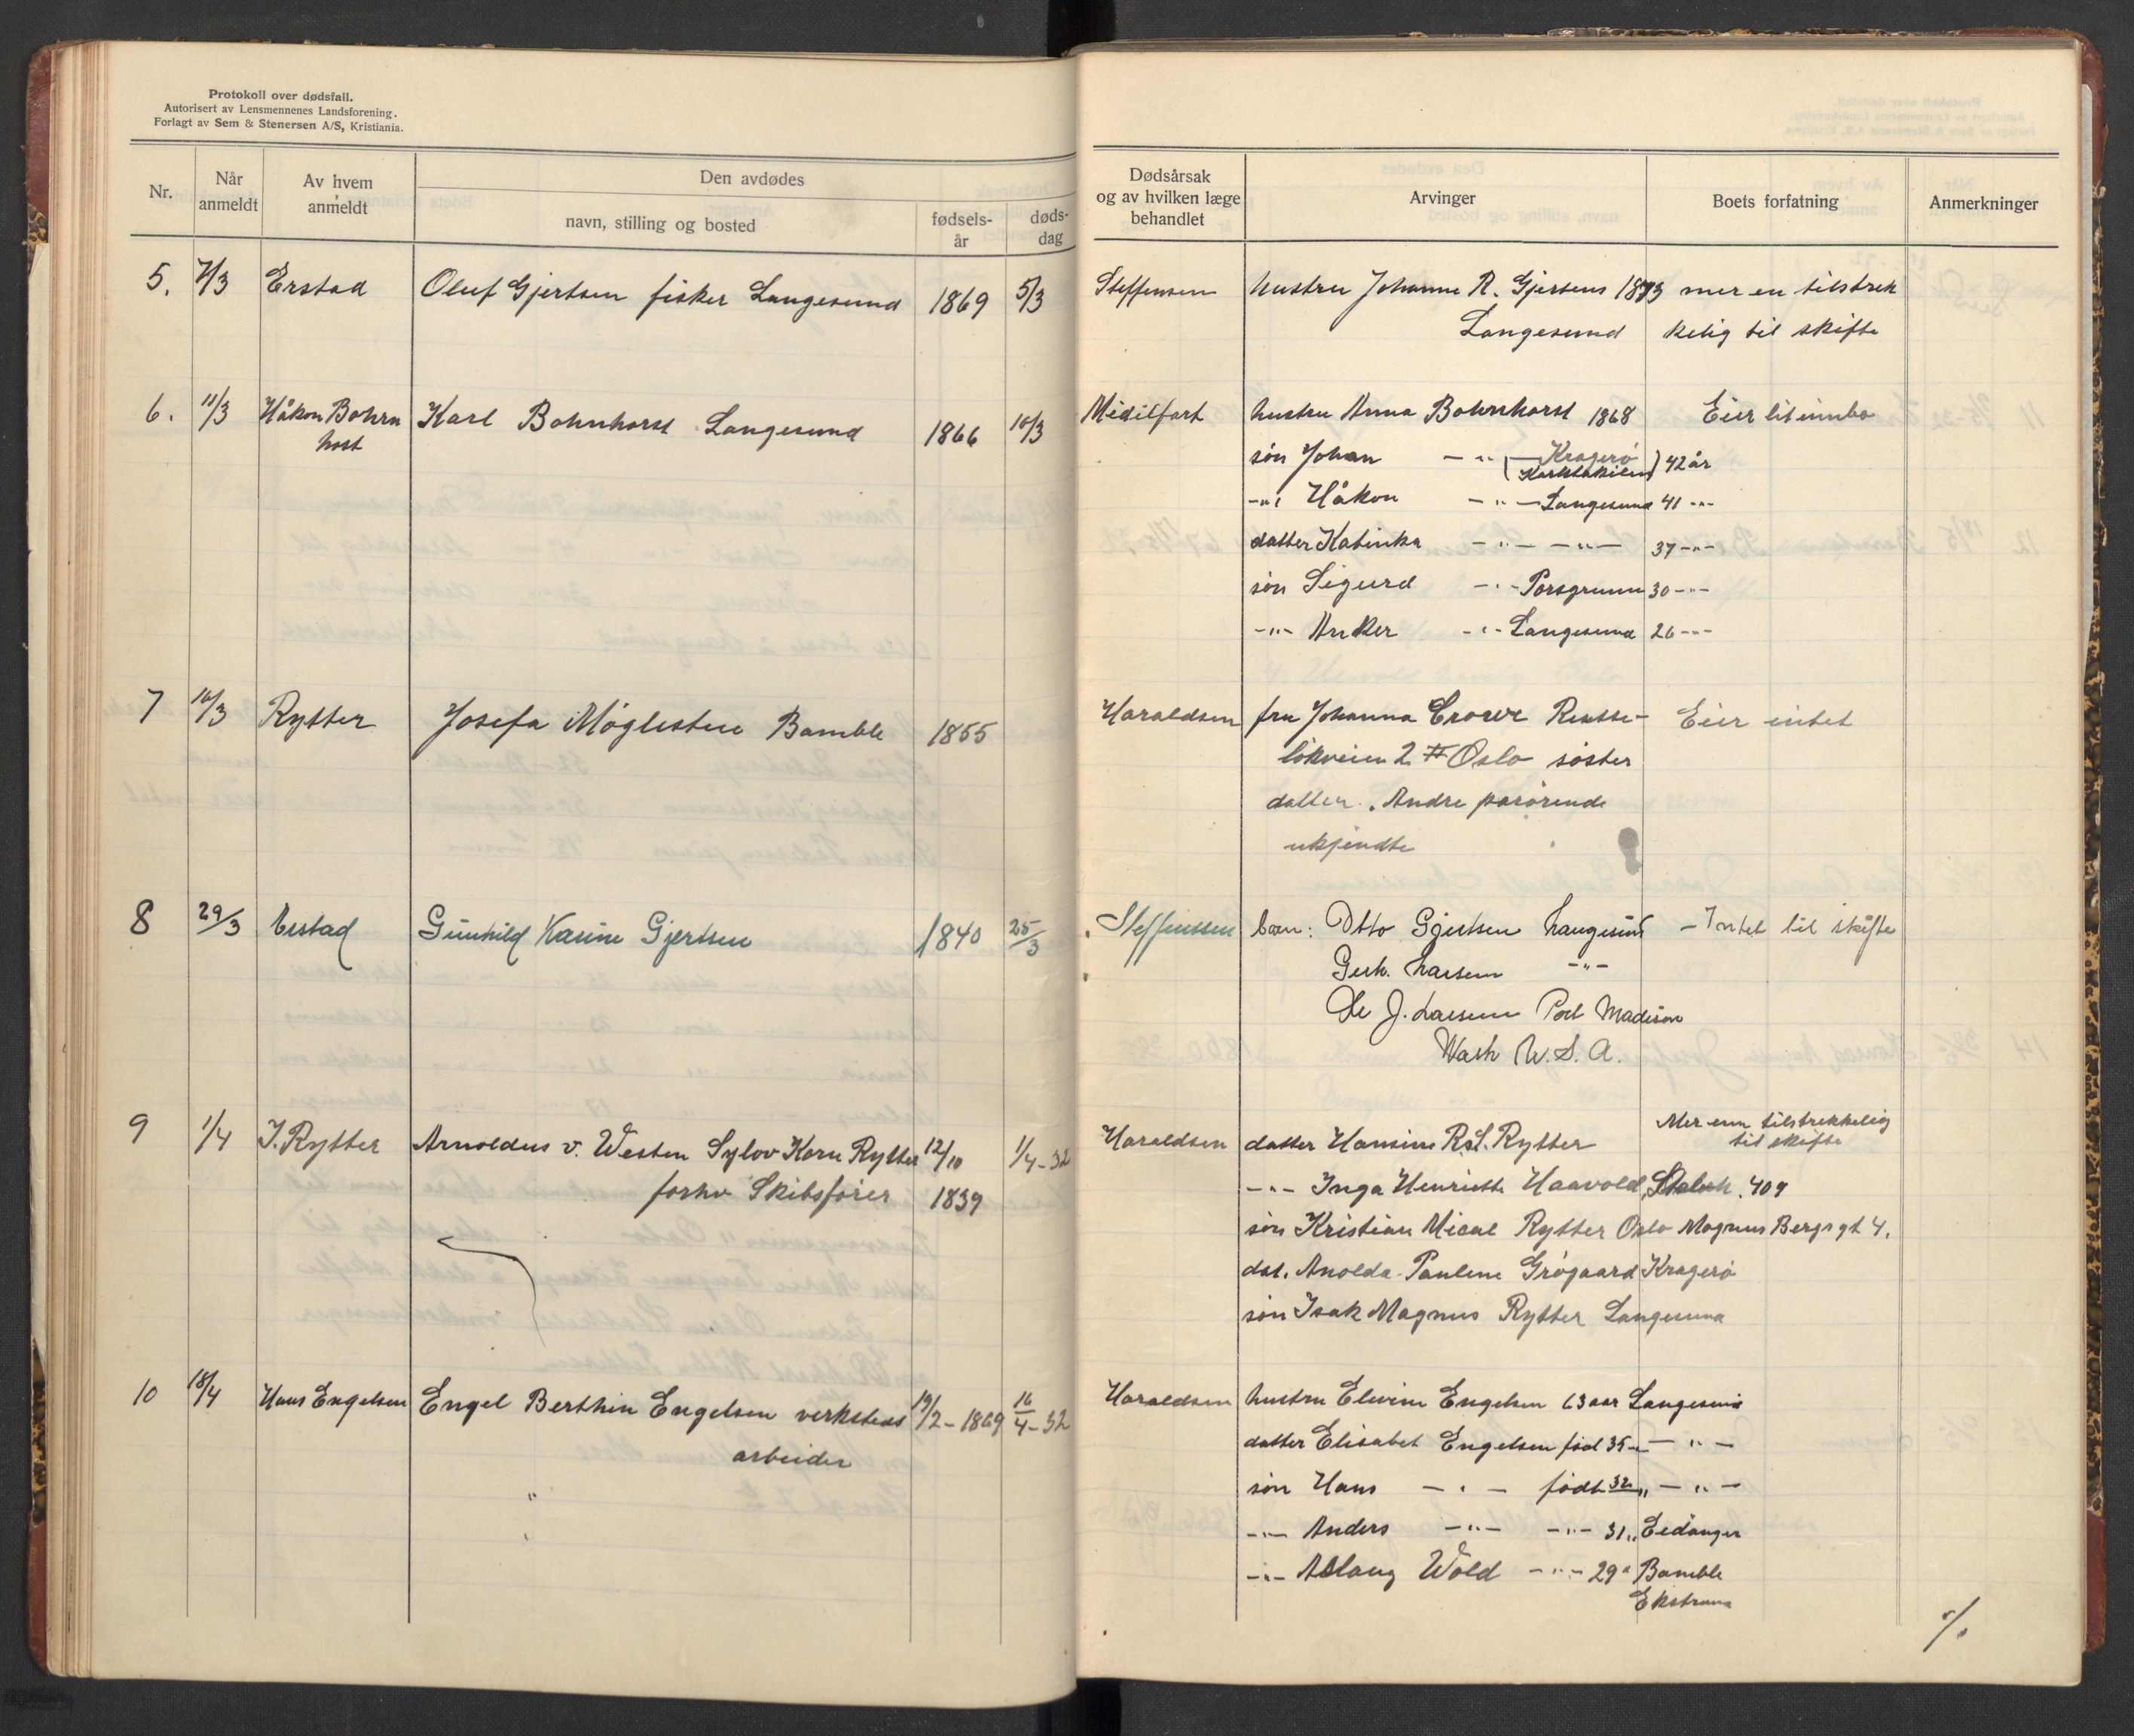 Protokoll over dødsfall.
Autorisert av Lensmennenes Landsforening.
Forlagt av Sem & Stenersen A/S, Kristiania.
Nr.
Når anmeldt
Av hvem anmeldt
Den avdødes
navn, stilling og bosted
fødsels-år
døds-dag
Dødsårsak og av hvilken læge behandlet
Arvinger
Boets forfatning
Anmerkninger
5. 7/3 Erstad Oluf Gjertsen fisker Langesund 1869 5/3 Steffensen hustru Johanne R. Gjertsens 1873 mer en tilstrek
Langesund kelig til skifte
6. 11/3 Håkon Bohrn Karl Bohnhorst Langesund 1866 10/3 Midilfart hustru Anna Bohnhorst 1868 Eier lit innbo
host
søn Johan — " — Kragerø 42 år
-"- Håkon - " - Langesund 41 -"-
datter Katinka - " - - " - 37 -"-
søn Sigurd - " - Porsgrunn 30 -"-
-"- Anker - " - Langesund 26 -"-
7 16/3 Rytter Josefa Møglestue Bamble 1855 Haraldsen fru Johanna
løkveien 2 Oslo søster
datter. Andre pårørende
ukjendte
Eier intet
8 29/3 Erstad Gunhild Karine Gjertsen 1840 25/3 Steffenssen barn: Otto Gjertsen Langesund - Intet til skifte
Gerh. Larsen -"-
Ole J. Larsen Port Madison
Wash U.S.A.
9 1/4 I. Rytter Arnoldus v. Westen Sylov Korn Rytter 12/10 1/4-32 Haraldsen datter Hansine R.S. Rytter Mer enn tilstrekkelig
til skifte
forhv Skibsfører 1839
-"- Inga Henriette Haavold, 409
søn Kristian Mical Rytter Oslo Magnus Bergs gt 4.
dat. Anolda Pauline Grøgaard Kragerø
søn Isak Magnus Rytter Langesund
10 18/4 Hans Engelsen Engel Berthin Engelsen verksteds 19/2-1869 16/4-32 Haraldsen hustru Elevine Engelsen 63 aar Langesund
arbeider
datter Elisabet Engelsen fød 35 - " -
søn Hans - " - født 32 " - " -
-"- Anders -"- -"- 31 " Eidanger
-"- Aslaug Wold -"- 29 " Bamble
Ekstrand